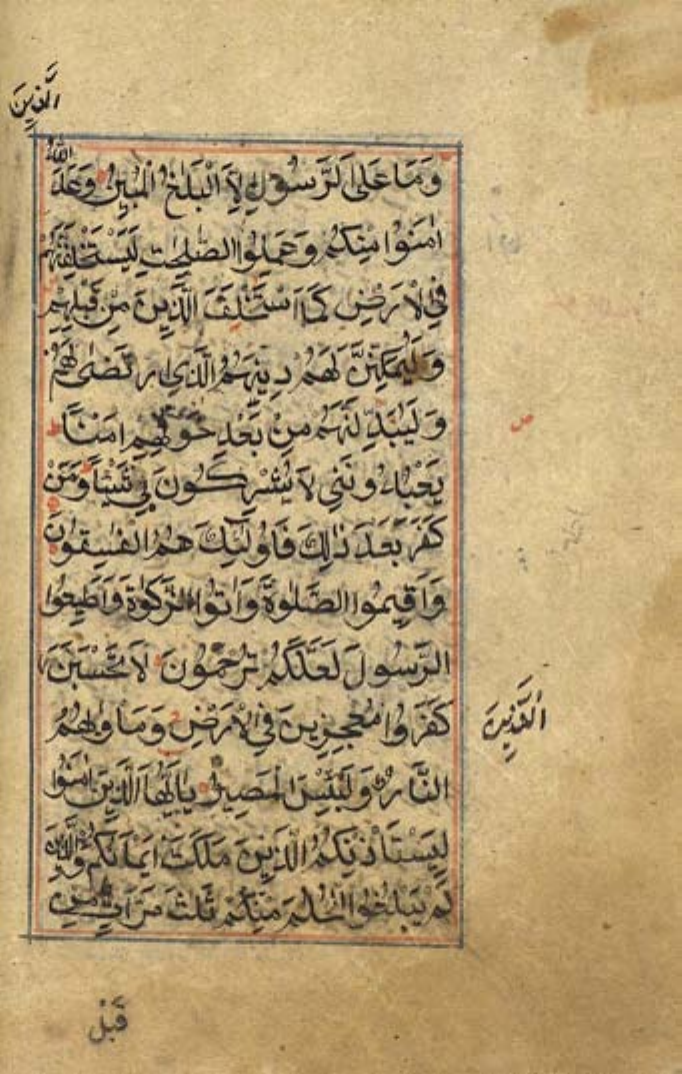 الَّذِينَ
وَمَا عَلَى الرَّسُولِ إِلَّا الْبَلٰغُ الْمُبِينُ وَعَدَ اللّٰهُ
اٰمَنُوا مِنْكُمْ وَعَمِلُوا الصّٰلِحٰتِ لَيَسْتَخْلِفَنَّهُمْ
فِي الْاَرْضِ كَمَا اسْتَخْلَفَ الَّذِينَ مِنْ قَبْلِهِمْ
وَلَيُمَكِّنَنَّ لَهُمْ دِينَهُمُ الَّذِي ارْتَضٰى لَهُمْ
وَلَيُبَدِّلَنَّهُمْ مِنْ بَعْدِ خَوْفِهِمْ اَمْنًا
يَعْبُدُونَنِي لَا يُشْرِكُونَ بِي شَيْئًا وَمَنْ
كَفَرَ بَعْدَ ذٰلِكَ فَاُولٰئِكَ هُمُ الْفٰسِقُونَ
وَاَقِيمُوا الصَّلٰوةَ وَاٰتُوا الزَّكٰوةَ وَاَطِيعُوا
الرَّسُولَ لَعَلَّكُمْ تُرْحَمُونَ لَا تَحْسَبَنَّ
الَّذِينَ
كَفَرُوا مُعْجِزِينَ فِي الْاَرْضِ وَمَاْوٰىهُمُ
النَّارُ وَلَبِئْسَ الْمَصِيرُ يٰاَيُّهَا الَّذِينَ اٰمَنُوا
لِيَسْتَاْذِنْكُمُ الَّذِينَ مَلَكَتْ اَيْمَانُكُمْ وَالَّذِينَ
لَمْ يَبْلُغُوا الْحُلُمَ مِنْكُمْ ثَلٰثَ مَرَّاتٍ مِنْ
قَبْلِ